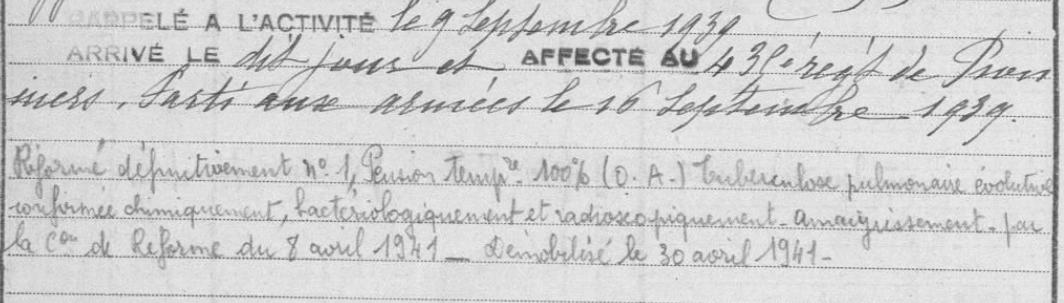 RAPPELÉ A L'ACTIVITÉ le 9 Septembre 1939
ARRIVÉ LE dit jour et AFFECTÉ AU 435e régt de Pion
niers. Parti aux armées le 16 Septembre 1939.
Réformé définitivement n° 1, Pension tempre 100% (O. A.) Tuberculose pulmonaire évolutive
confirmée chimiquement, bactériologiquement et radioscopiquement - amaigrissement - par
la Con de Réforme du 8 avril 1941 — Démobilisé le 30 avril 1941 -